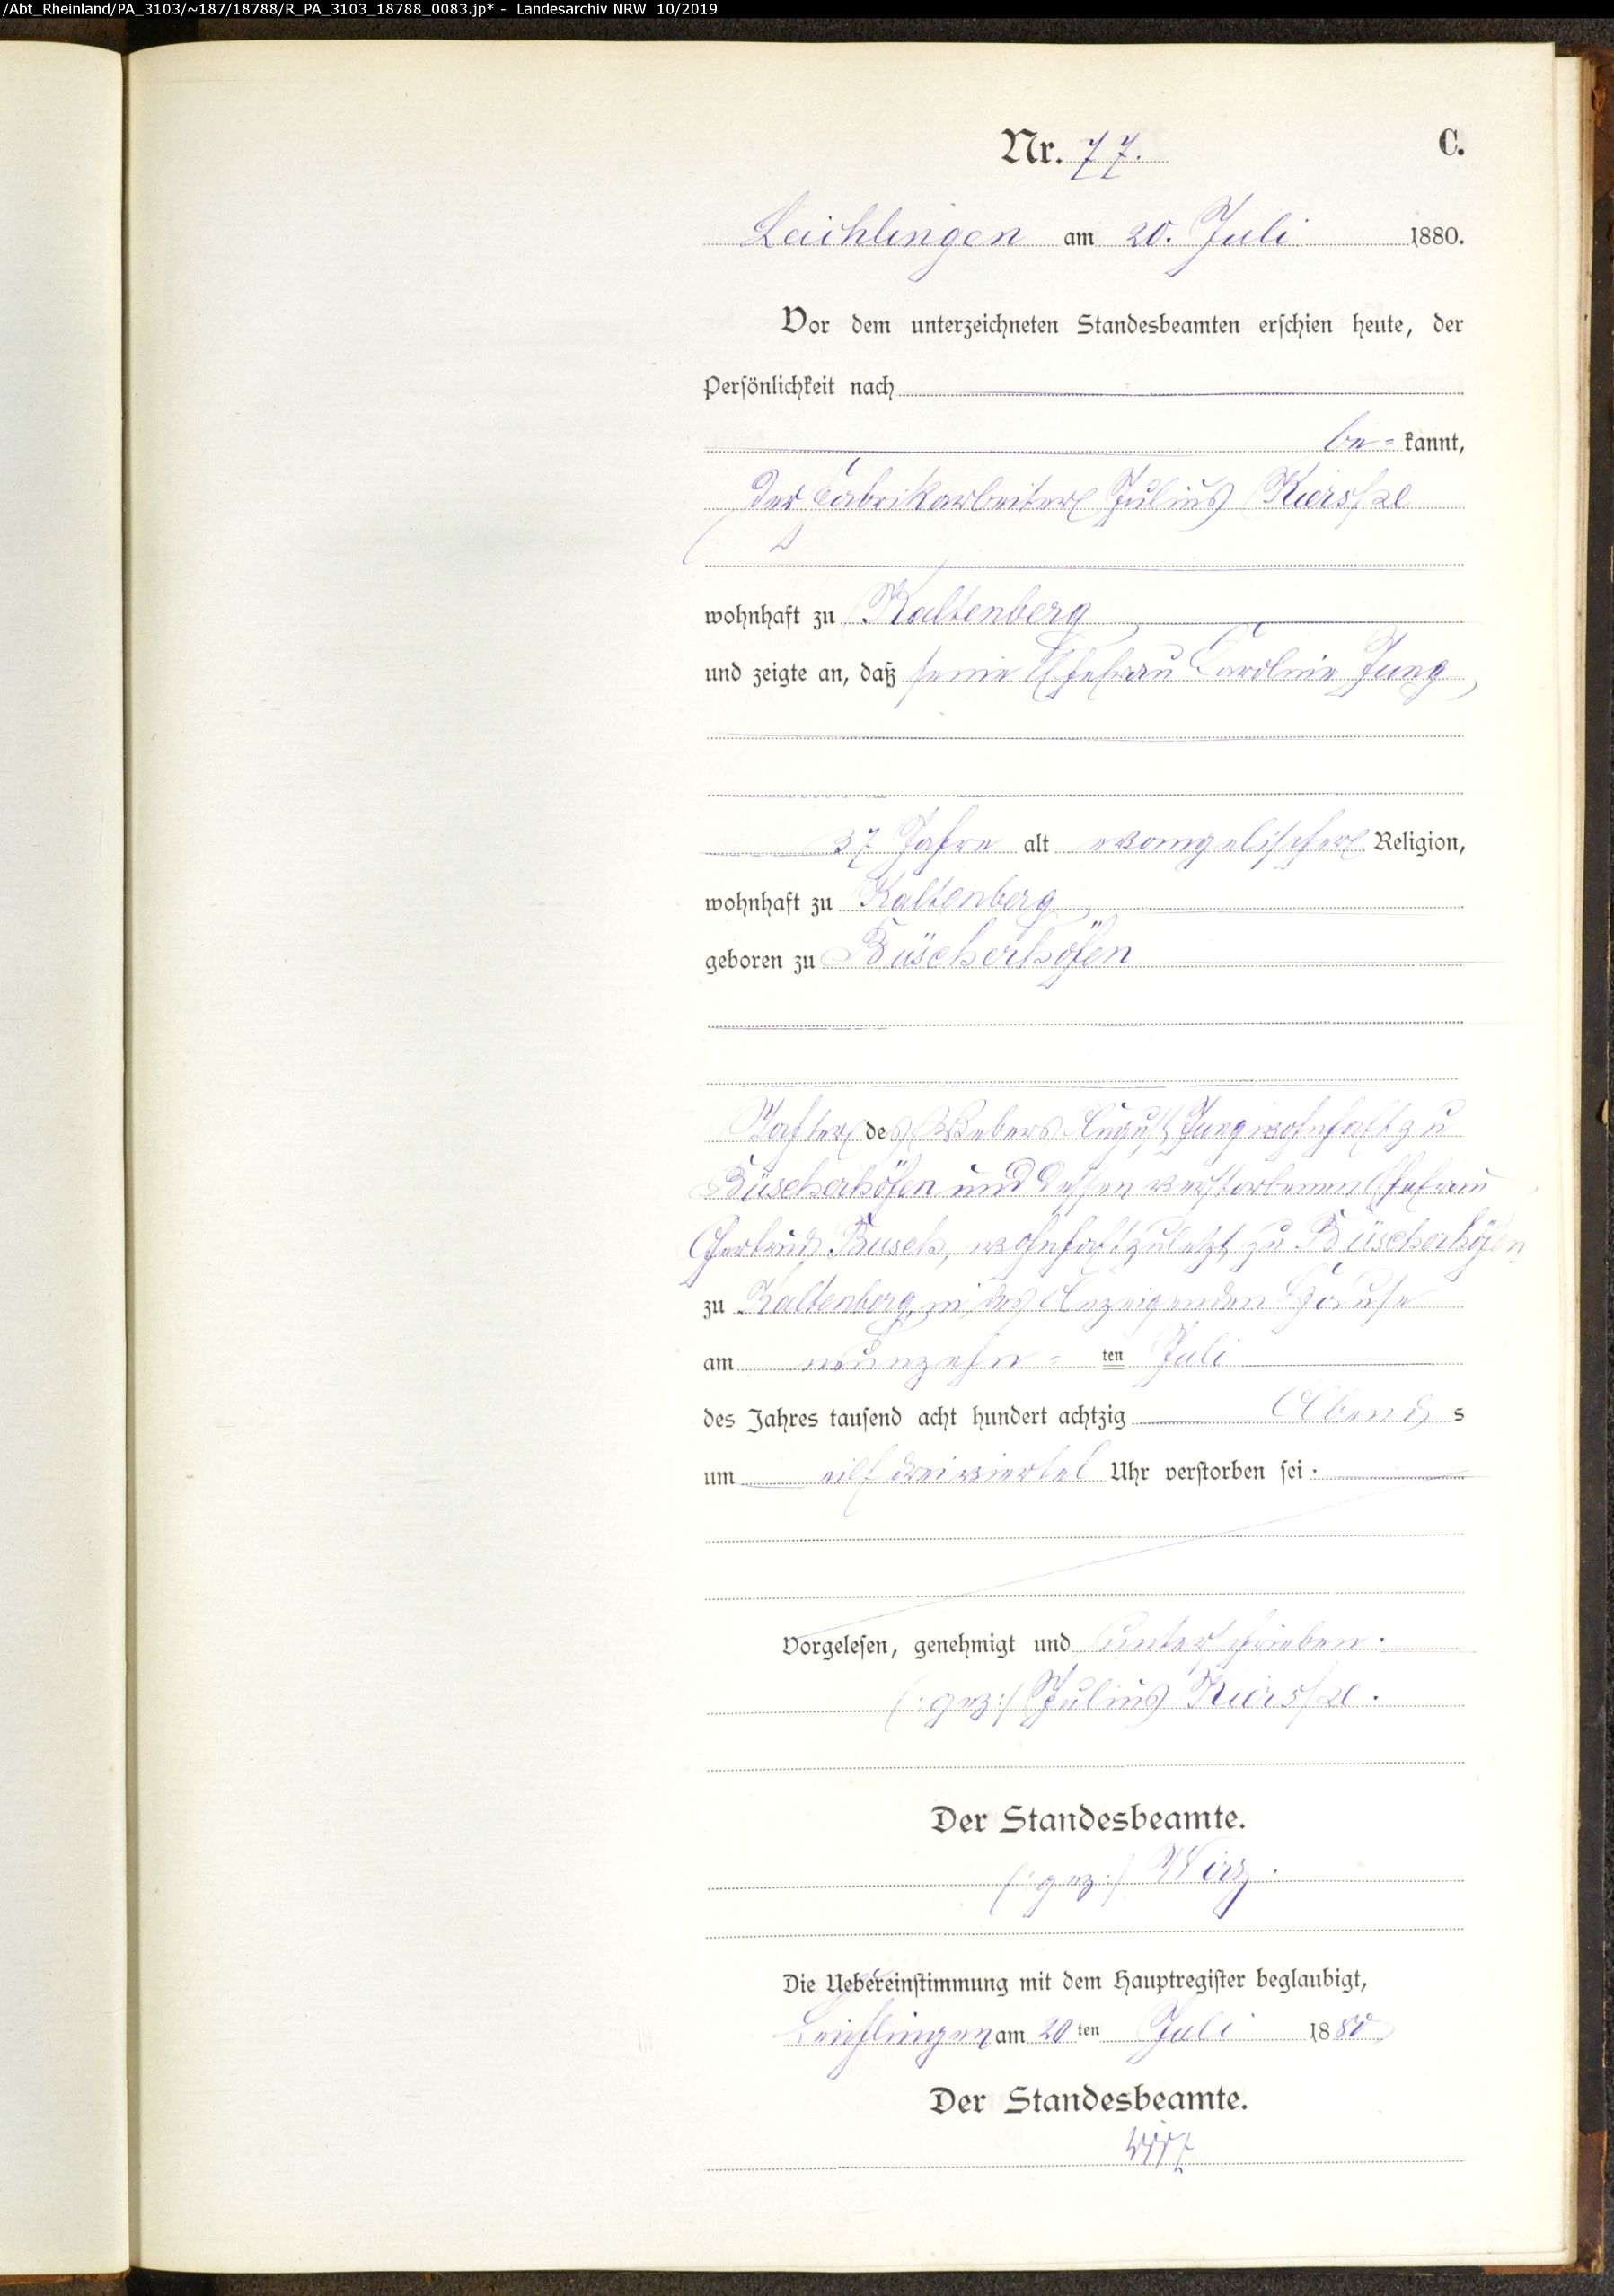 /Abt_Rheinland/PA_3103/~187/18788/R_PA_3103_18788_0083.jp* - Landesarchiv NRW 10/2019
Nr. 77.
C.
Leichlingen am 20. Juli 1880.
Vor dem unterzeichneten Standesbeamten erschien heute, der
Persönlichkeit nach
be= kannt,
der Fabrikarbeiter Julius Kierspel
wohnhaft zu Kaltenberg
und zeigte an, daß seine Ehefrau Caroline Jung,
37 Jahre alt evangelischer Religion,
wohnhaft zu Kaltenberg
geboren zu Büscherhöfen
Tochter des Webers August Jung wohnhaft zu
Büscherhöfen und dessen verstorbenen Ehefrau
Gertrud Busch, wohnhaft zuletzt zu Büscherhöfen
zu Kaltenberg, in des Anzeigenden Hause
am neunzehn= ten Juli
des Jahres tausend acht hundert achtzig Abends s
um eilf dreiviertel Uhr verstorben sei.
Vorgelesen, genehmigt und unterschrieben.
(:gez:) Julius Kierspel.
Der Standesbeamte.
(:gez:) Wirz.
Die Uebereinstimmung mit dem Hauptregister beglaubigt,
Leichlingen am 20 ten Juli 1880
Der Standesbeamte.
Wirz